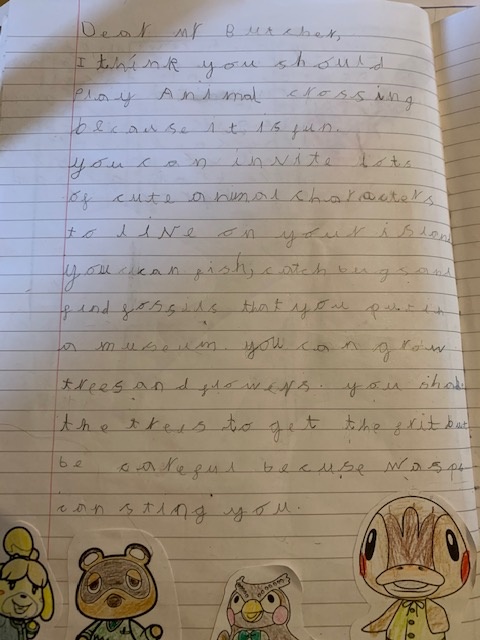 Dear Mr Butcher,
I think you should
play Animal crossing
because it is fun.
you can invite lots
of cute animal characters
to live on your island
you can fish, catch bugs and
find fossils that you put in
a museum. you can grow
trees and flowers. you shake
the trees to get the frit but
be careful becuse wasps
can sting you.